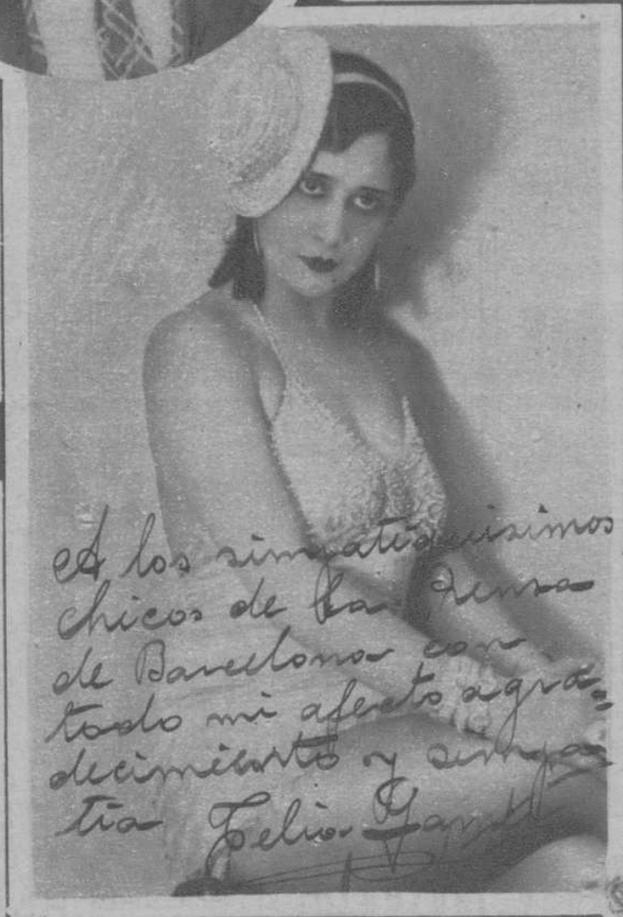 A los simpatiquisimos
chicos de la Prensa
de Barcelona con
todo mi afecto agra=
decimiento y simpa
tía Celia Gamez